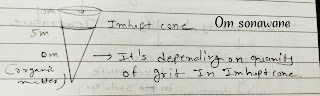 Imhopt cone
Om sonawane
5m
0m
(organic
matter)
→ It's depending on quantity
of grit In Imhopt cone.